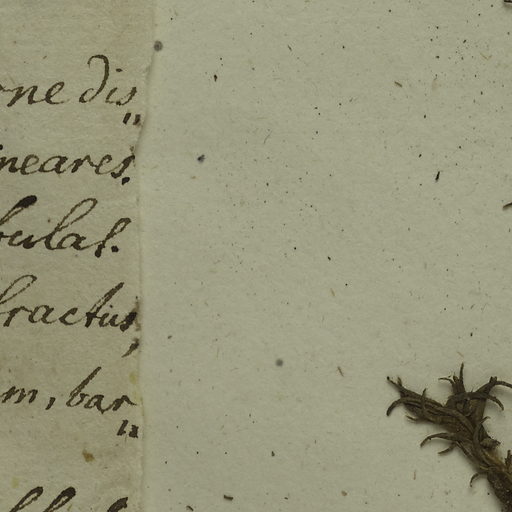 ne dis„
neares.
bulas.
fractus,
m, bar„